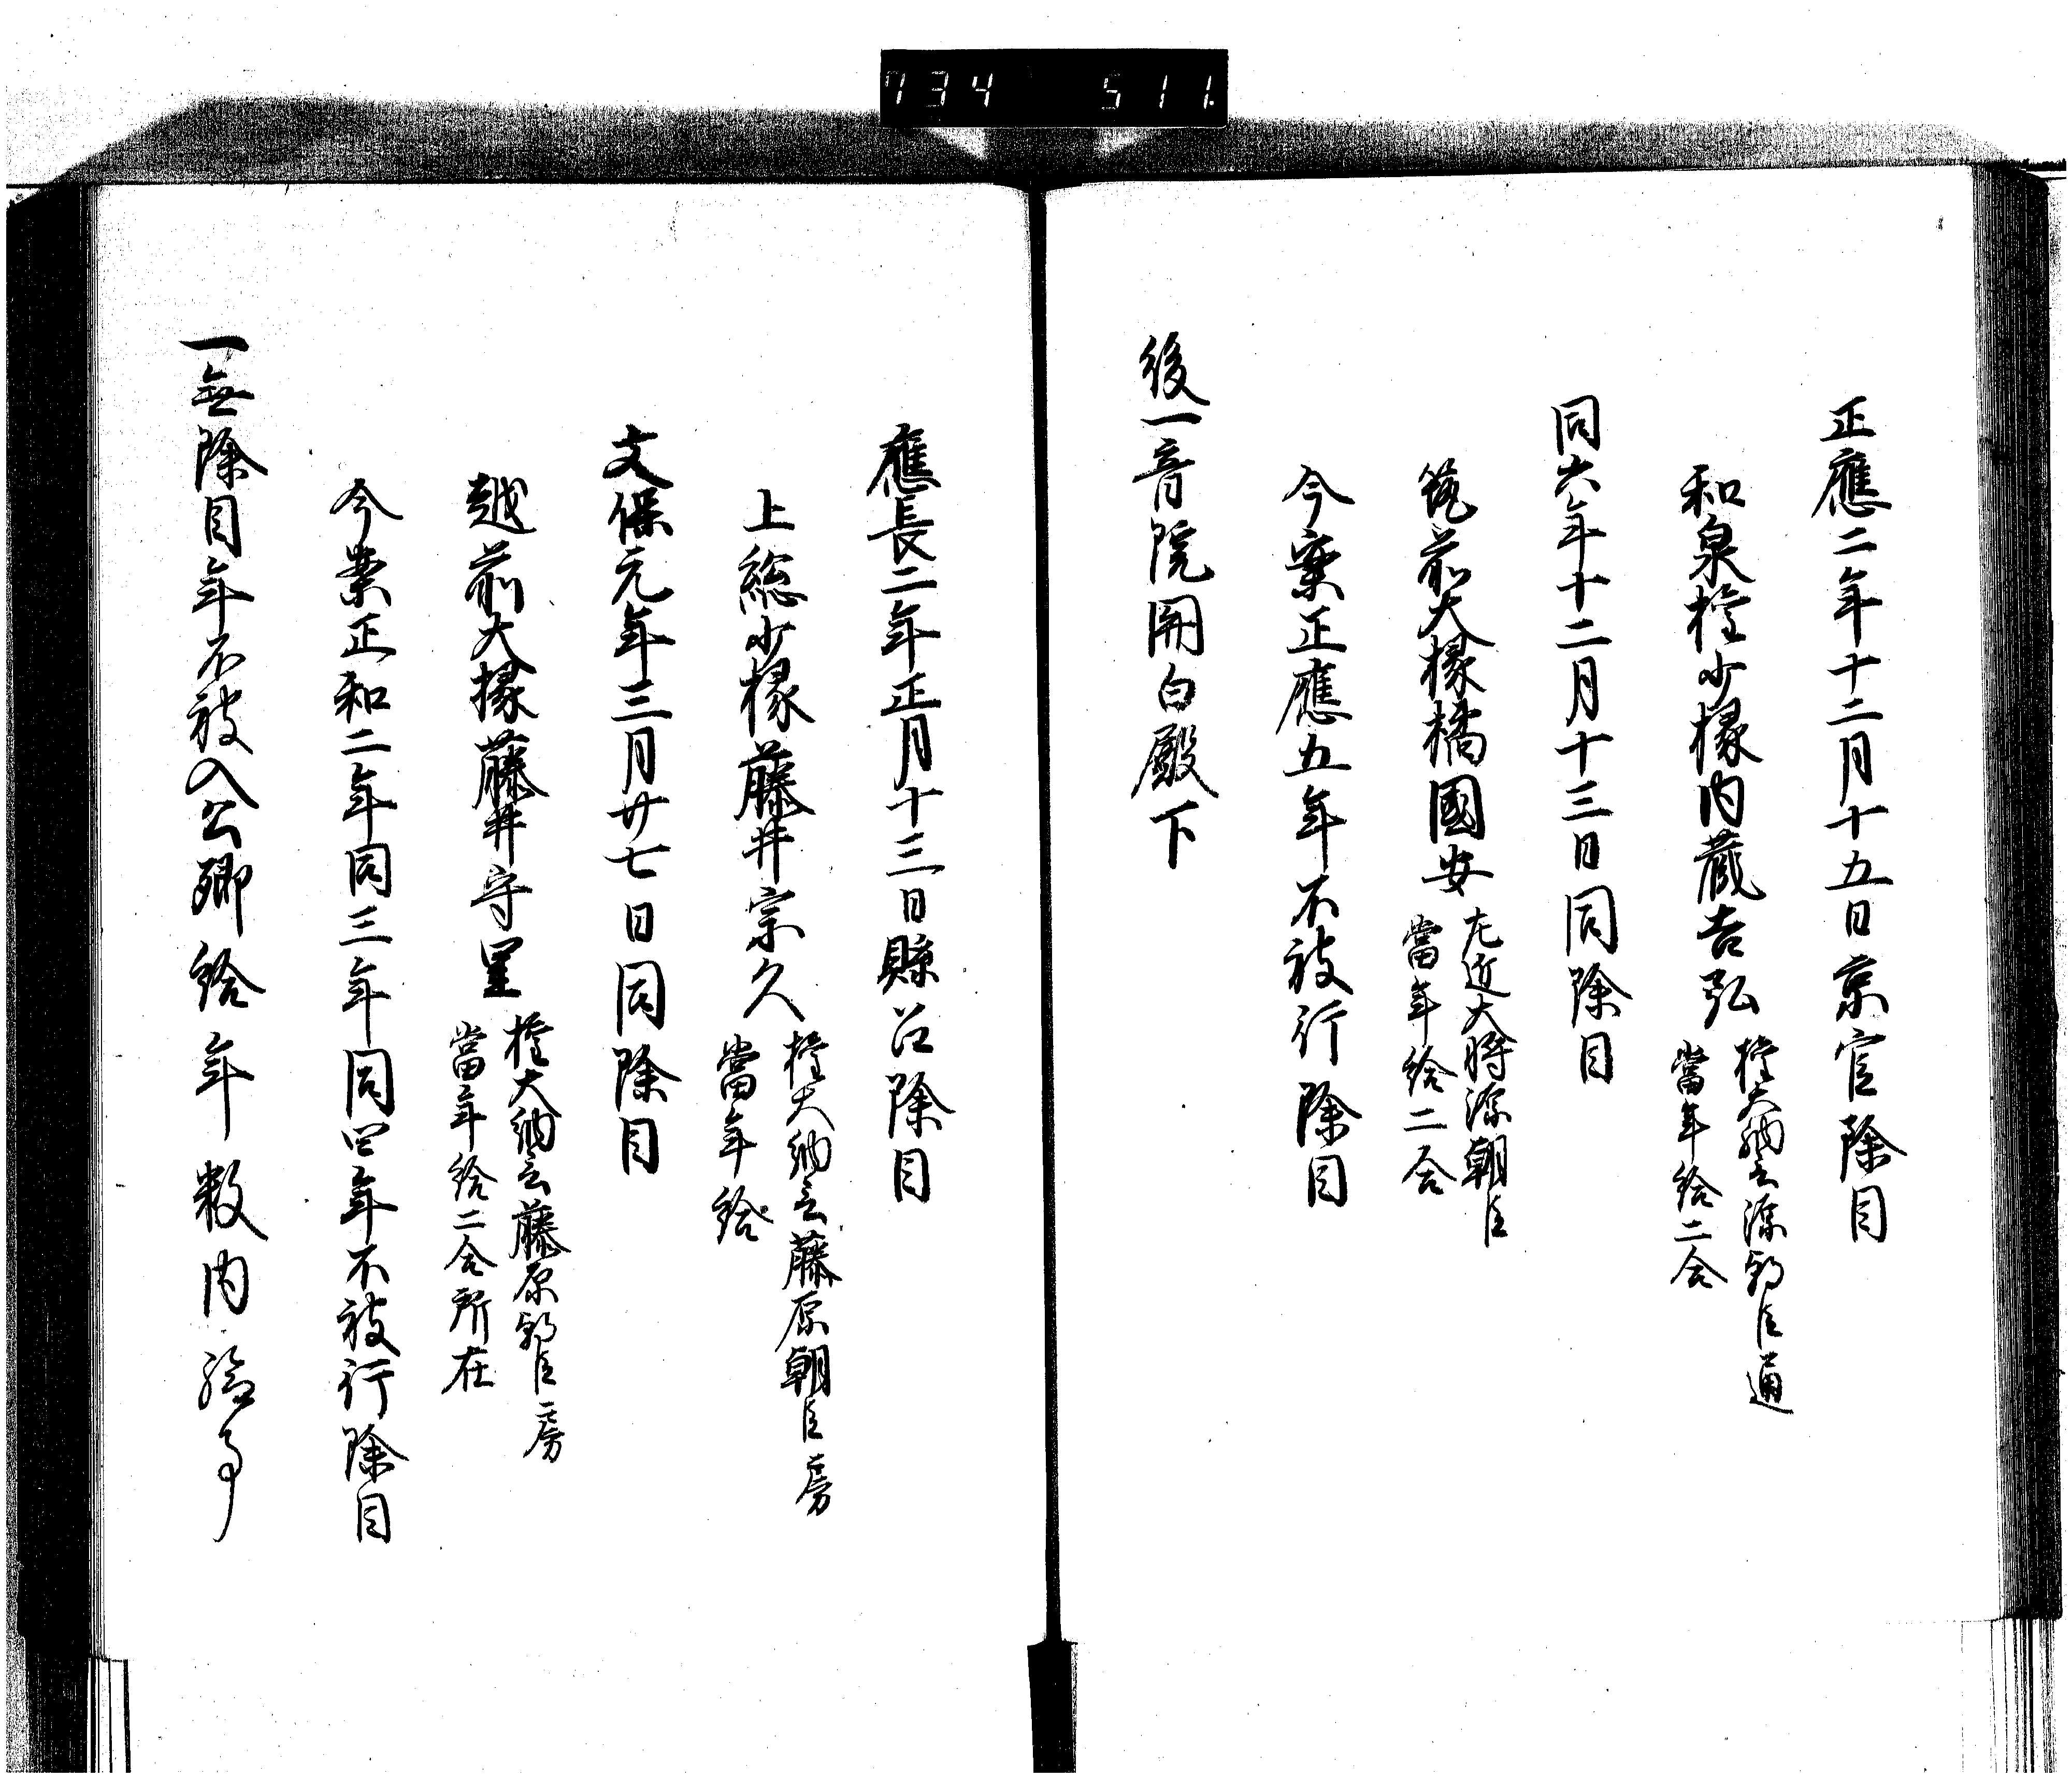 734 511
正應二年十二月十五日京官除目
和泉權少掾内藏吉弘
權大納言源朝臣通
當年給二合
同六年十二月十三日同除目
筑前大掾橘國安
左近大將源朝臣
當年給二合
今案正應五年不被行除目
後一音院関白殿下
應長二年正月十三日縣召除目
上総少掾藤井宗久
權大納言藤原朝臣房
當年給
文保元年三月廿七日同除目
越前大掾藤井守里
權大納言藤原朝臣房
當年給二合所任
今案正和二年同三年同四年不被行除目
一無除目年不被入公卿給年数内給事